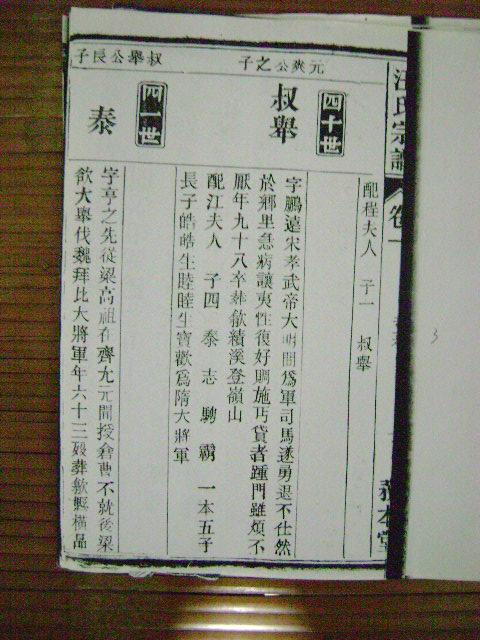 汪氏宗譜
卷一
配程夫人 子一 叔舉
元爽公之子
四十世
叔舉
字鵬遠宋孝武帝大明間為軍司馬遂勇退不仕然
於鄉里急病讓夷性復好賙施丐貸者踵門雖煩不
厭年九十八卒葬歙績溪登嶺山
配江夫人 子四 泰 志 騁 霸 一本五子
長子皓皓生睦睦生寶歡為隋大將軍
叔舉公長子
四一世
泰
字亨之先從梁高祖在齊九元間授倉曹不就後梁
欲大舉伐魏拜比大將軍年六十三歿葬歙縣橫品